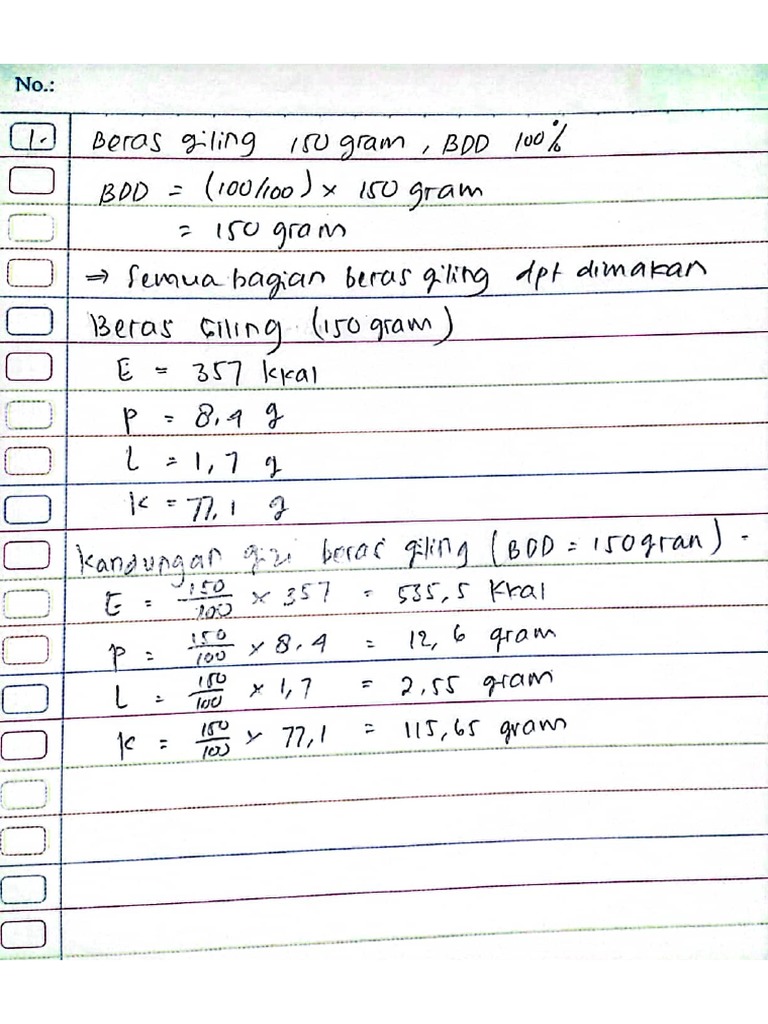 No.:
1. Beras giling 150 gram, BDD 100%
BDD = (100/100) x 150 gram
= 150 gram
⇒ Semua bagian beras giling dpt dimakan
Beras Giling (150 gram)
E = 357 kkal
P = 8,4 g
L = 1,7 g
K = 77,1 g
Kandungan gizi beras giling (BDD = 150 gram) -
E = 150/100 x 357 = 535,5 Kkal
P = 150/100 x 8,4 = 12,6 gram
L = 150/100 x 1,7 = 2,55 gram
K = 150/100 x 77,1 = 115,65 gram